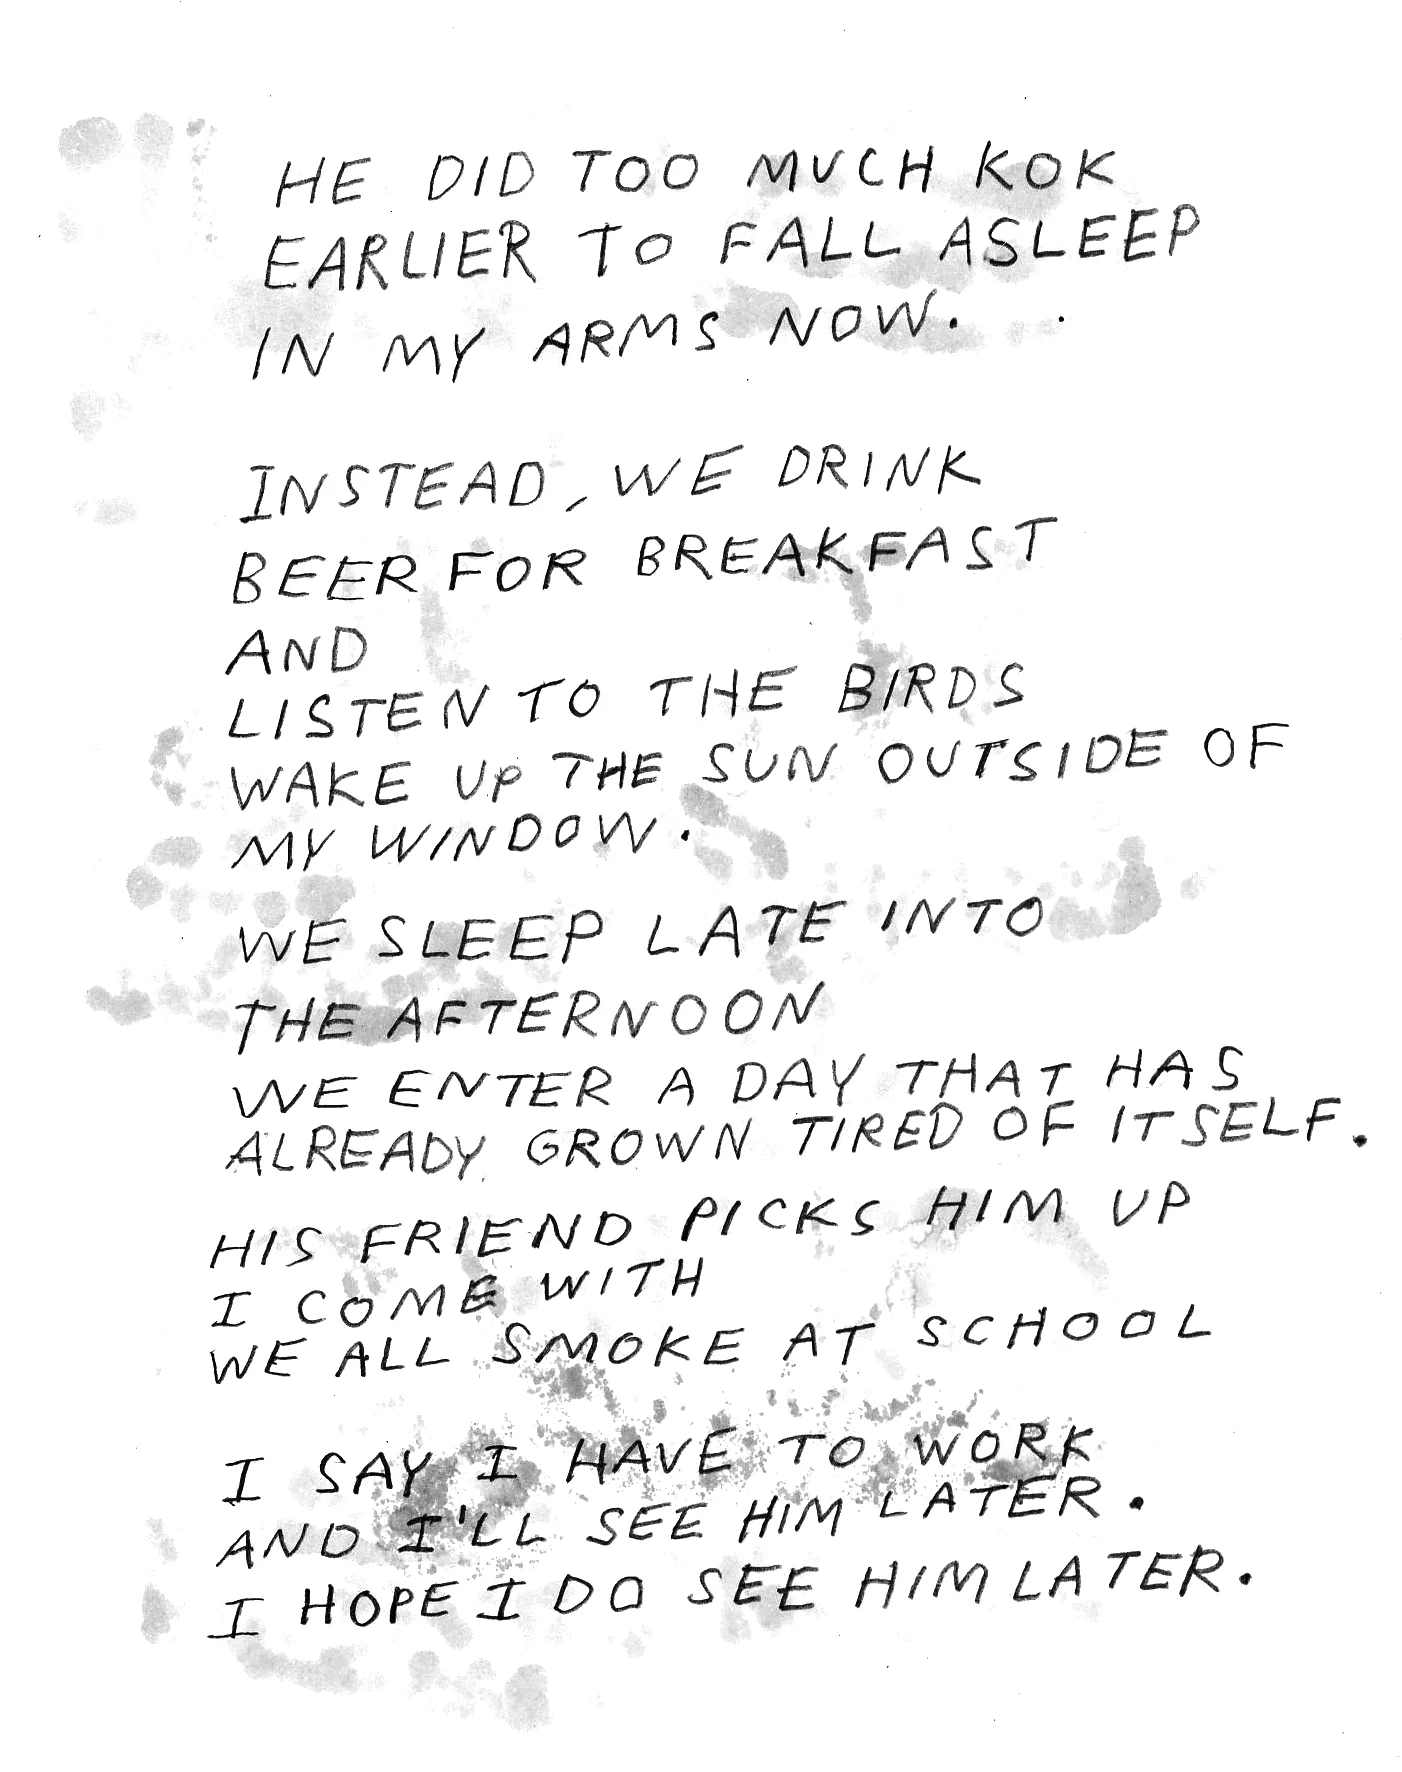 HE DID TOO MUCH KOK
EARLIER TO FALL ASLEEP
IN MY ARMS NOW.
INSTEAD, WE DRINK
BEER FOR BREAKFAST
AND
LISTEN TO THE BIRDS
WAKE UP THE SUN OUTSIDE OF
MY WINDOW.
WE SLEEP LATE INTO
THE AFTERNOON
WE ENTER A DAY THAT HAS
ALREADY GROWN TIRED OF ITSELF.
HIS FRIEND PICKS HIM UP
I COME WITH
WE ALL SMOKE AT SCHOOL
I SAY I HAVE TO WORK
AND I'LL SEE HIM LATER.
I HOPE I DO SEE HIM LATER.